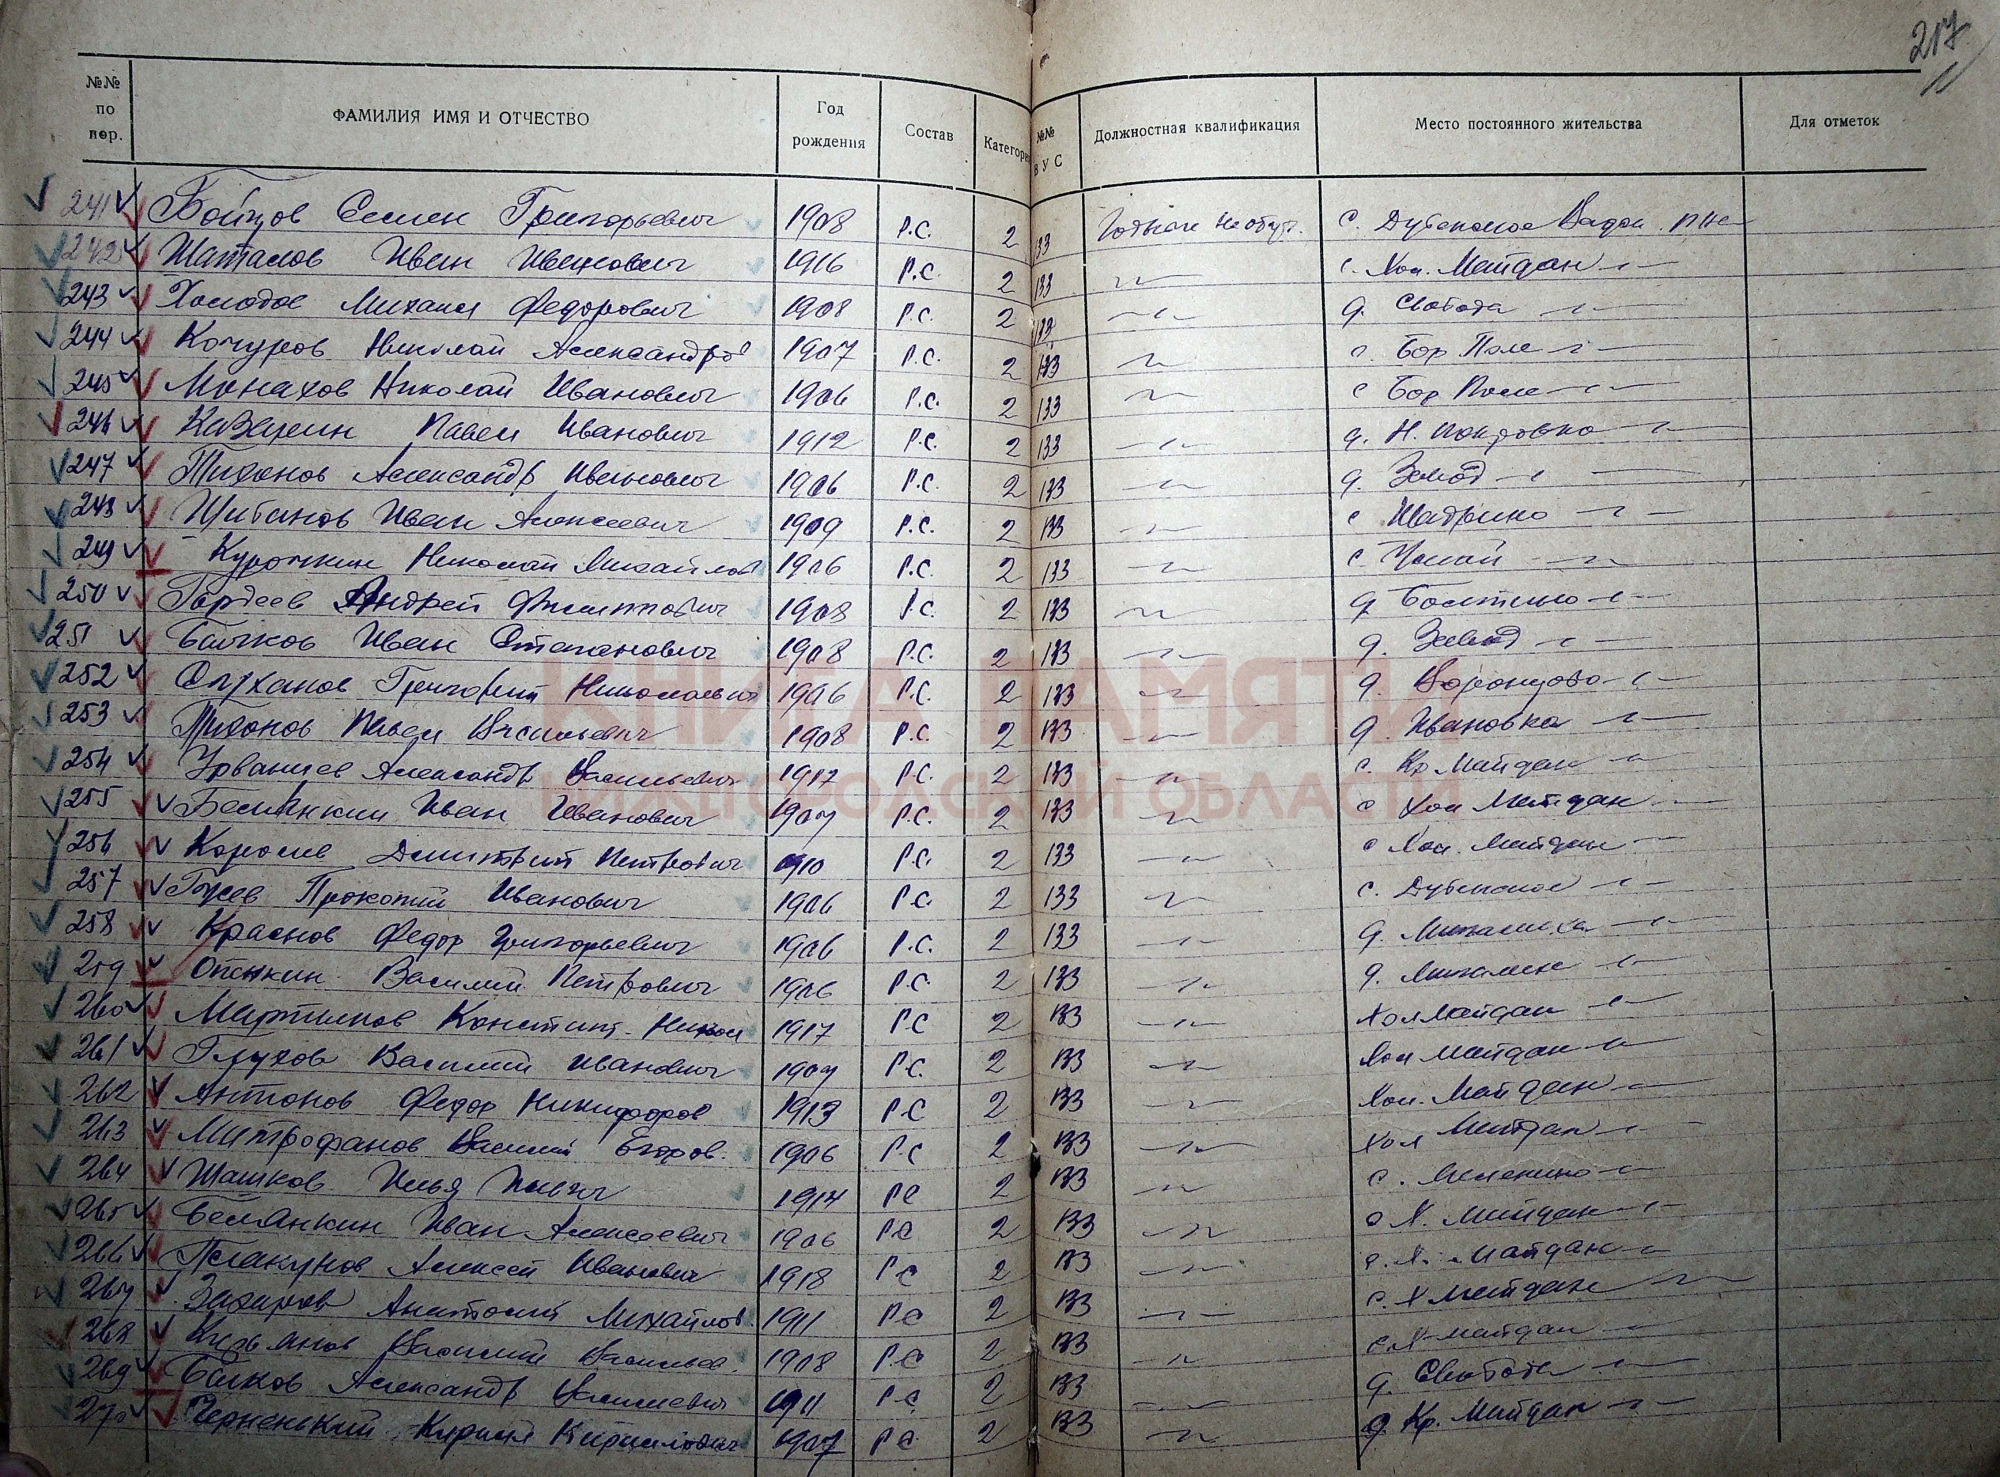 217
№№ по пор. ФАМИЛИЯ ИМЯ И ОТЧЕСТВО Год рождения Состав Категория №№ ВУС Должностная квалификация Место постоянного жительства Для отметок
241 Бойцов Семен Григорьевич 1908 Р.С. 2 133 Годные необуч. с. Дубенское Вадск. р-на
242 Шаталов Иван Иванович 1916 Р.С. 2 133 –"– с. Хол. Майдан –"–
243 Холодов Михаил Федорович 1908 Р.С. 2 133 –"– д. Свобода –"–
244 Кочуров Николай Александров 1907 Р.С. 2 133 –"– с. Бор Поле –"–
245 Монахов Николай Иванович 1906 Р.С. 2 133 –"– с Бор Поле –"–
246 Казарин Павел Иванович 1912 Р.С. 2 133 –"– д. Н. Покровка –"–
247 Тихонов Александр Иванович 1906 Р.С. 2 133 –"– д. Завод –"–
248 Шибанов Иван Алексеевич 1909 Р.С. 2 133 –"– с Шадрино –"–
249 Курочкин Николай Михайлов 1906 Р.С. 2 133 –"– с –"–
250 Гордеев Андрей Филиппович 1908 Р.С. 2 133 –"– д Болтино –"–
251 Бачков Иван Степанович 1908 Р.С. 2 133 –"– д. Завод –"–
252 Григорий Николаевич 1906 Р.С. 2 133 –"– д. Воронцово –"–
253 Тихонов Павел Васильевич 1908 Р.С. 2 133 –"– д. Ивановка –"–
254 Урванцев Александр Васильевич 1917 Р.С. 2 133 –"– с. Кр Майдан –"–
255 Белянкин Иван Иванович 1907 Р.С. 2 133 –"– с Хол Майдан –"–
256 Королев Дмитрий Петрович 1910 Р.С. 2 133 –"– с Хол. Майдан –"–
257 Гусев Прокопий Иванович 1906 Р.С. 2 133 –"– с. Дубенское –"–
258 Краснов Федор Григорьевич 1906 Р.С. 2 133 –"– д. –"–
259 Опенкин Василий Петрович 1906 Р.С. 2 133 –"– д. –"–
260 Мартынов Констант. Никол 1917 РС 2 133 –"– Хол Майдан –"–
261 Глухов Василий Иванович 1907 Р.С. 2 133 –"– Хол Майдан –"–
262 Антонов Федор Никифоров 1913 Р.С 2 133 –"– Хол. Майдан –"–
263 Митрофанов Василий Егоров. 1906 РС 2 133 –"– Хол Майдан –"–
264 Шашков Илья Ильич 1914 РС 2 133 –"– с. –"–
265 Белянкин Иван Алексеевич 1906 РС 2 133 –"– с Х. Майдан –"–
266 Плакунов Алексей Иванович 1918 РС 2 133 –"– с. Х. Майдан –"–
267 Захаров Анатолий Михайлов. 1911 РС 2 133 –"– с. Х Майдан –"–
268 Кирьянов Василий Васильев. 1908 РС 2 133 –"– с Х майдан –"–
269 Бачков Александр Васильевич 1911 РС 2 133 –"– д. Свобода –"–
270 Черненький Кирилл Кириллович 1907 РС 2 133 –"– д Кр. Майдан –"–
КНИГА ПАМЯТИ
НИЖЕГОРОДСКОЙ ОБЛАСТИ